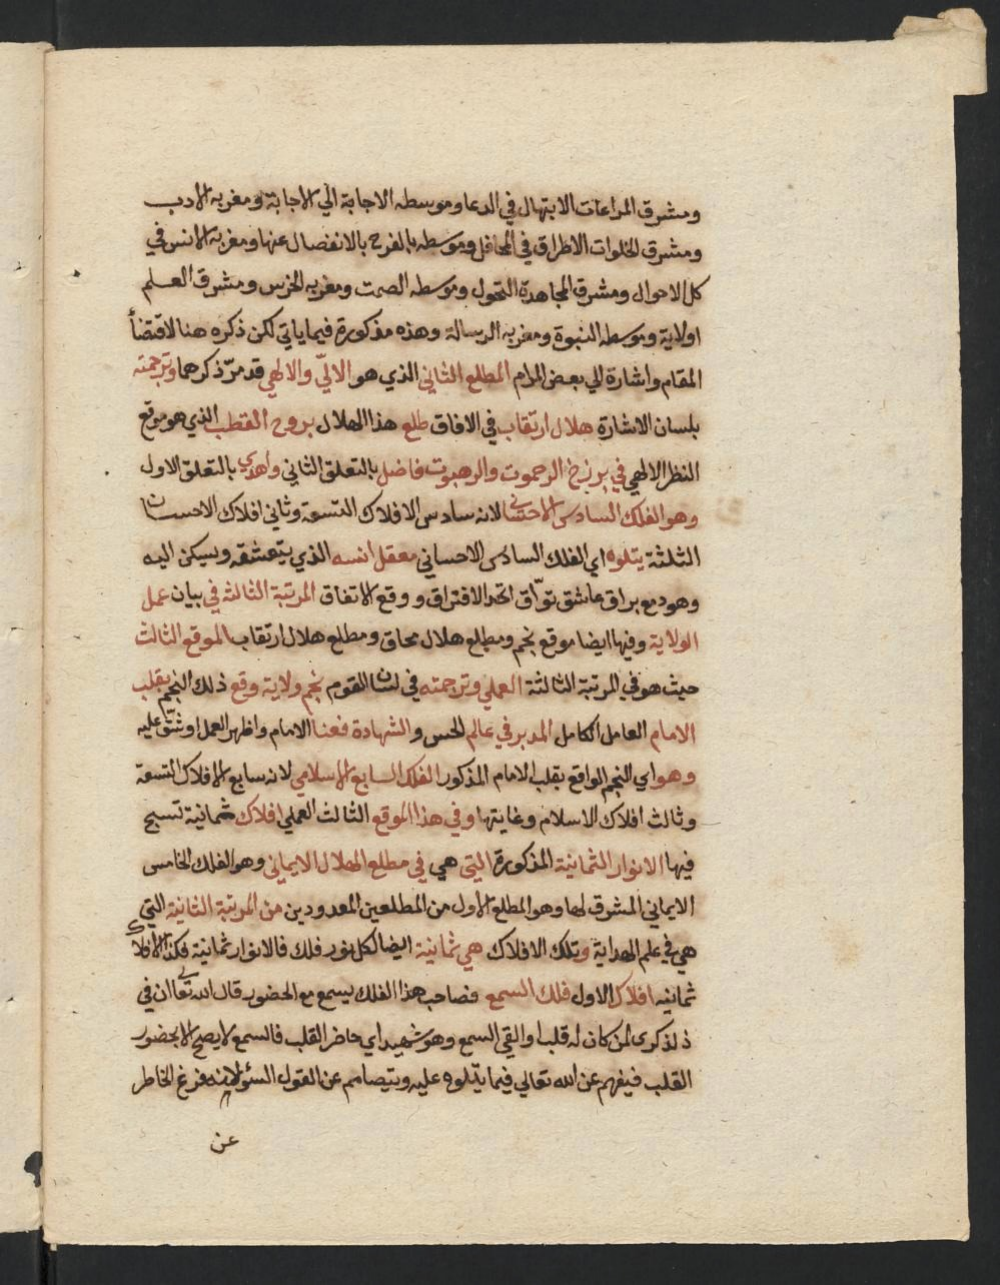 ومشرق المراعات الابتهال في الدعا وموسطه الاجابة الي الاجابة ومغربه الادب
ومشرق الخلوات الاطراق في المحافل وموسطه بالفرح بالانفصال عنها ومغربه الانس في
كل الاحوال ومشرق المجاهدة التحول وموسطه الصمت ومغربه الخرس ومشرق العلم
اولاية وموسطه النبوة ومغربه الرسالة وهذه مذكورة فيما ياتي لكن ذكره هنا لاقتضأ
المقام واشارة الي بعض المرام المطلع الثاني الذي هو الالّي والالهي قد مرّ ذكرهما وترجمته
بلسان الاشارة هلال ارتقاب في الافاق طلع هذا الهلال بروح القطب الذي هو موقع
النظر الالهي في برزخ الرحموت والرهبوت فاضل بالتعلق الثاني واهدي بالتعلق الاول
وهو الفلك السادس الاحساني لانه سادس الافلاك التسعة وثاني افلاك الاحسان
الثلثة يتلوه اي الفلك السادس الاحساني معقل انسه الذي يتعشقه ويسكن اليه
وهو دمع براق عاشق توّاق اتحد الافتراق ووقع الاتفاق المرتبة الثالثة في بيان عمل
الولاية وفيها ايضا موقع نجم ومطلع هلال محاق ومطلع هلال ارتقاب الموقع الثالث
حيث هو في المرتبة الثالثة العملي وترجمته في لسان القوم نجم ولاية وقع ذلك النجم بقلب
الامام العامل الكامل المدبر في عالم الحس والشهادة فعنا الامام واظهر العمل اوشتّ عليه
وهو اي النجم الواقع بقلب الامام المذكور الفلك السابع الاسلامي لانه سابع الافلاك التسعة
وثالث افلاك الاسلام وغايتها وفي هذا الموقع الثالث العملي افلاك ثمانية تسبح
فيها الانوار الثمانية المذكورة التي هي في مطلع الهلال الايماني وهو الفلك الخامس
الايماني المشرق لها وهو المطلع الاول من المطلعين المعدودين من المرتبة الثانية التي
هي في علم الهداية وتلك الافلاك هي ثمانية ايضا لكل نور فلك فالانوار ثمانية فكذا الافلاك
ثمانيه افلاك الاول فلك السمع فصاحب هذا الفلك يسمع مع الحضور قال الله تعالى ان في
ذلك لذكرى لمن كان له قلب او القي السمع وهو شهيد اي حاضر القلب فالسمع لا يصح الا بحضور
القلب فيفهم عن الله تعالي فيما يتلوه عليه ويتصامم عن القول السوء لانه فرغ الخاطر
عن